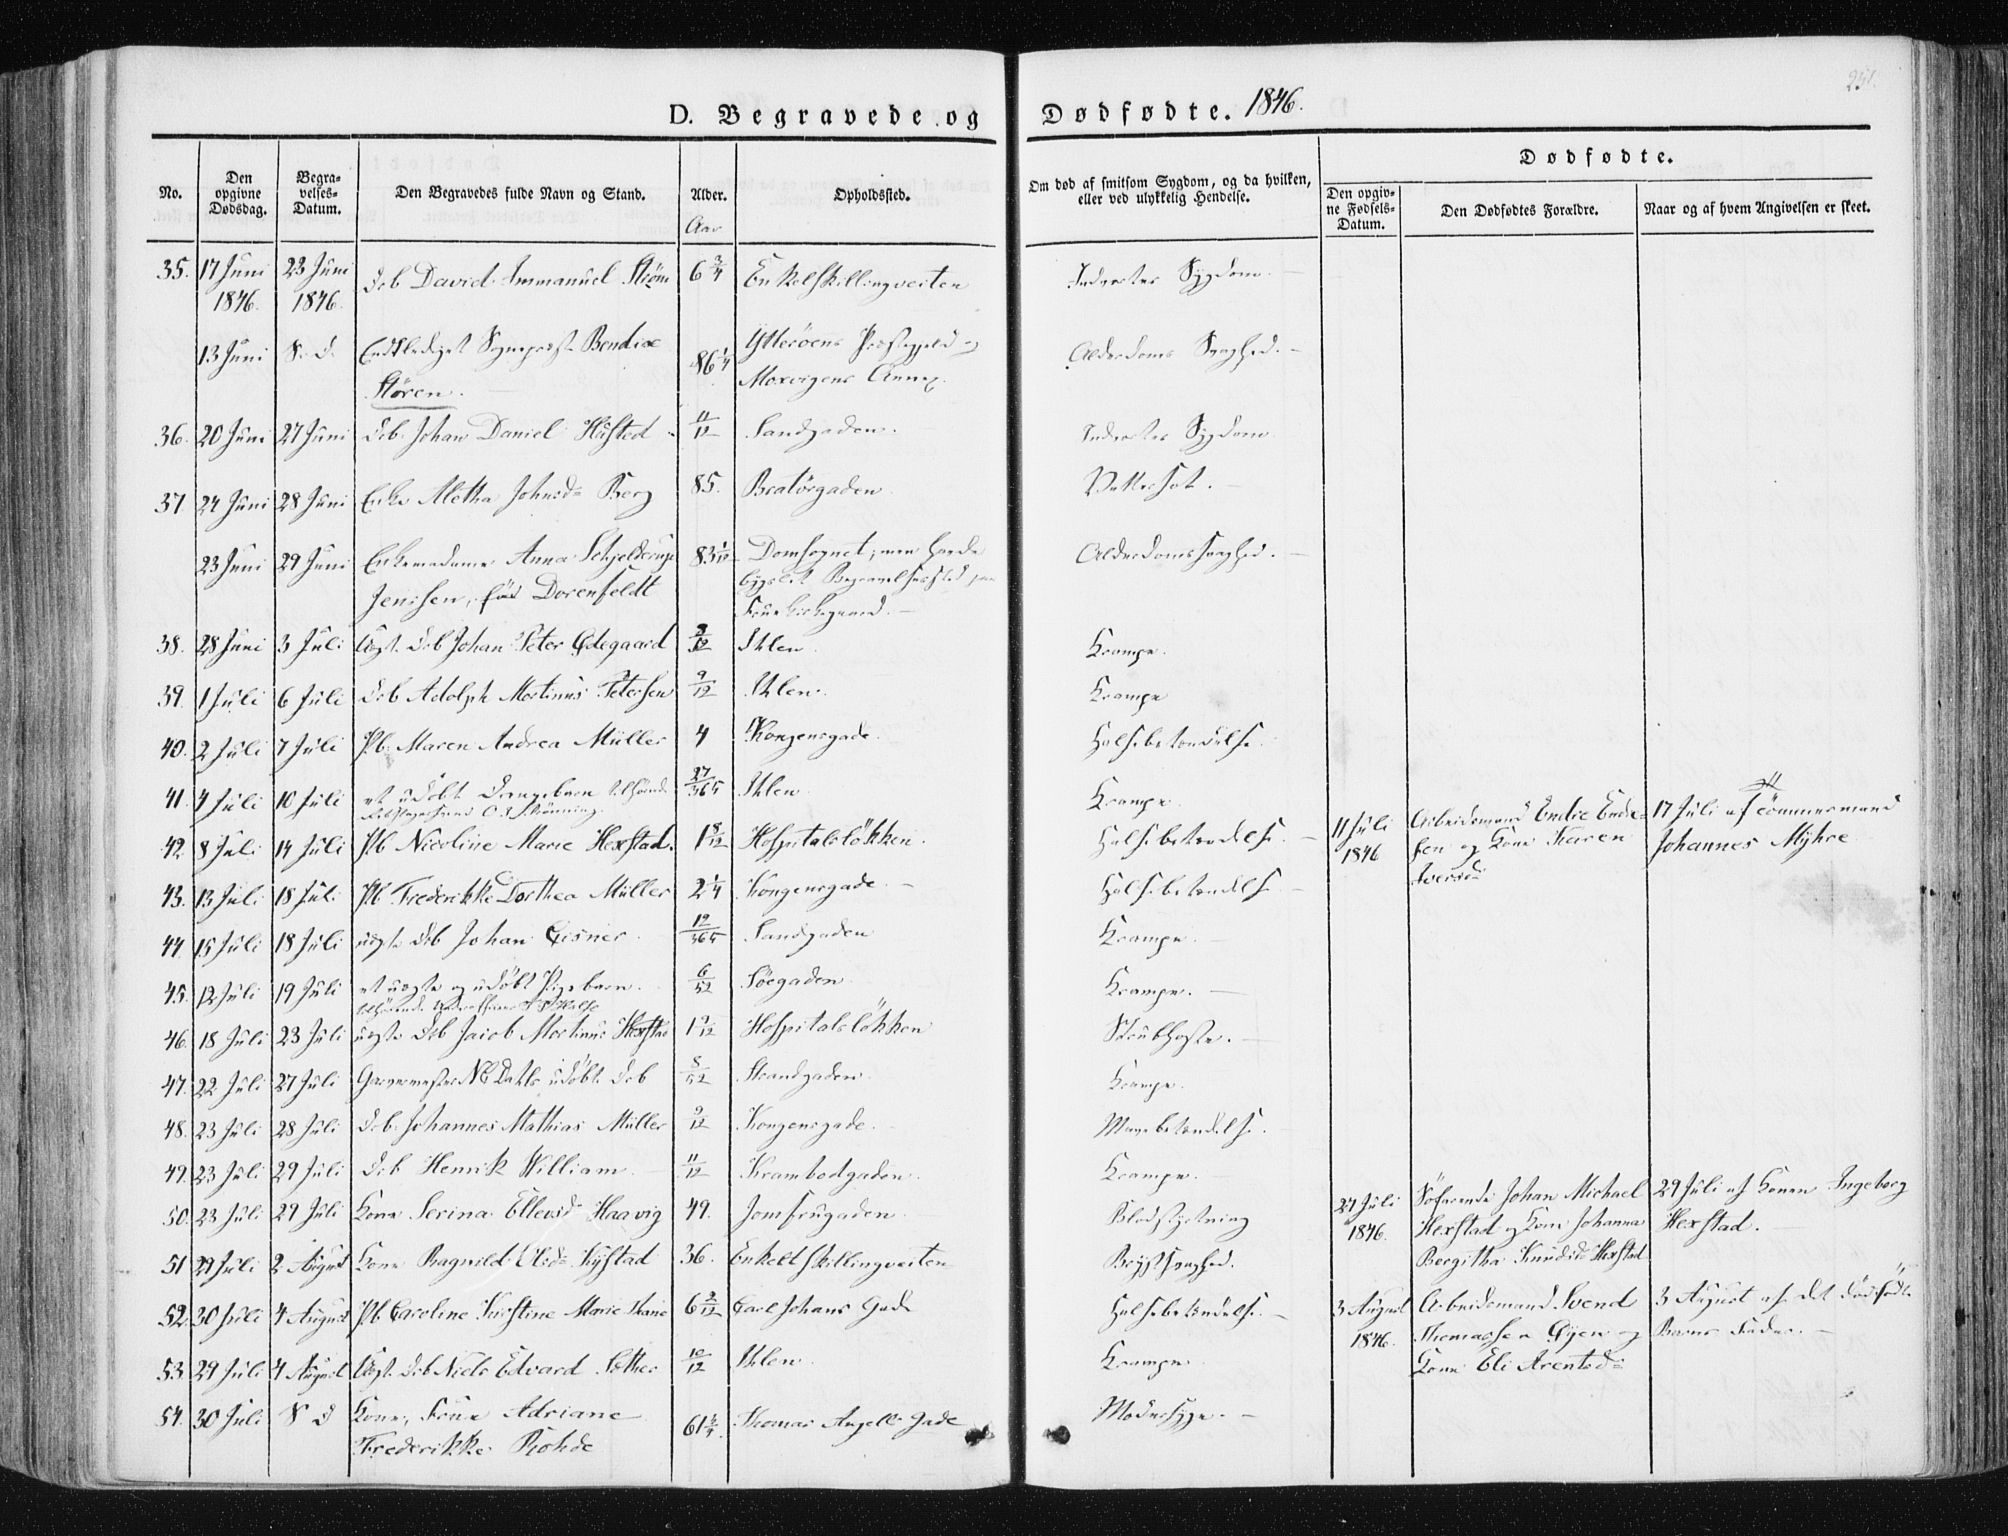 251.
D. Begravede og Dødfødte. 1846.
No.
Den opgivne Dødsdag.
Begravelses-Datum.
Den Begravedes fulde Navn og Stand.
Alder.
Aar
Opholdssted.
Om død af smitsom Sygdom, og da hvilken, eller ved ulykkelig Hendelse.
Dødfødte.
Den opgivne Fødsels-Datum.
Den Dødfødtes Forældre.
Naar og af hvem Angivelsen er skeet.
35. 17 Juni 1846. 23 Juni 1846. Db David Immanuel Strøm 6 3/4 Enkelskillingveiten Indvortes Sygdom.
13 Juni S. D. Entlediget Sogneprest Bendix Støren. 86 1/4 Ytteröens Præstegjeld Mosvigens Annex. Alderdoms Svaghed.
36. 20 Juni 27 Juni Db. Johan Daniel Håsted 11/12 Sandgaden. Indvortes Sygdom
37. 24 Juni 28 Juni Enke Aletha Johnsd Berg 85. Bratörgaden Vattersot.
23 Juni 29 Juni Enkemadame Anna Schjelderup Jenssen, född Dorenfeldt 83 1/12 Domsognet, men havde Begravelsessted paa Frue Kirkegaard. Alderdomssvaghed.
38. 28 Juni 3 Juli Uægt. Db Johan Peter Ødegaard Ihlen. Krampe.
39. 1 Juli 6 Juli Db Adolph Martinus Petersen 9/12 Ihlen. Krampe
40. 2 Juli 7 Juli Pb. Maren Andrea Müller 4 Kongensgade. Halsebetændelse.
41. 4 Juli 10 Juli et udöbt Drengebarn tilhörende 27/365 Ihlen Krampe
42. 8 Juli 14 Juli Pb Nicoline Marie Hexstad. 1 8/12 Hospitalslökken. Halsebetændelse. 11 Juli 1846 Arbeidsmand Endre Endresen og Kone Karen Iversd: 17 Juli af Tömmermand Johannes Myhre
43. 13 Juli 18 Juli Pb Frederikke Dorthea Müller 2 1/4 Kongensgade. Halsebetændelse
44. 15 Juli 18 Juli uægte Db Johan Eisner 12/365 Sandgaden Krampe.
45. 12 Juli 19 Juli et uægte og udöbt Pigebarn. tilhörende 6/52 Söegaden. Krampe.
46. 18 Juli 23 Juli uægte Db Jacob Martinus Hexstad 1 9/12 Hospitalslökken Strubhoste.
47. 22 Juli 27 Juli Garvermester N C Dahls udöbte Db 8/52 Strandgaden. Krampe.
48. 23 Juli 28 Juli Db. Johannes Mathias Müller 9/12 Kongensgade. Mavebetændelse.
49. 23 Juli 29 Juli Db Henrik William 11/12 Krambodgaden. Krampe.
50. 23 Juli 29 Juli Kone Serina Ellevsd Haavig 49. Jomfrugaden. Blodstyrtning 27 Juli 1846. Söfarende Johan Michael Hexstad og Kone Johanna Bergitha Knudsd Hexstad 29 Juli af Konen Ingeborg Hexstad.
51 29 Juli 2 August Kone Ragnild Olsd Kystad 36. Enkeltskillingveiten Brystsvaghed.
52. 30 Juli 4 August Pb Caroline Kirstine Marie 6 Carl Johans Gade Halsebetændelse. 3 August 1846. Arbeidsmand Svend Thomassen Öyen og Kone Eli Arentsd: 3 August af det dödfödte Barns Fader.
53. 29 Juli 4 August Uægt. Db Niels Edvard 10/12 Ihlen. Krampe
54. 30 Juli S D Kone, Frue Adriane Frederikke Rohde 61 Thomas Angells Gade Modersyge.